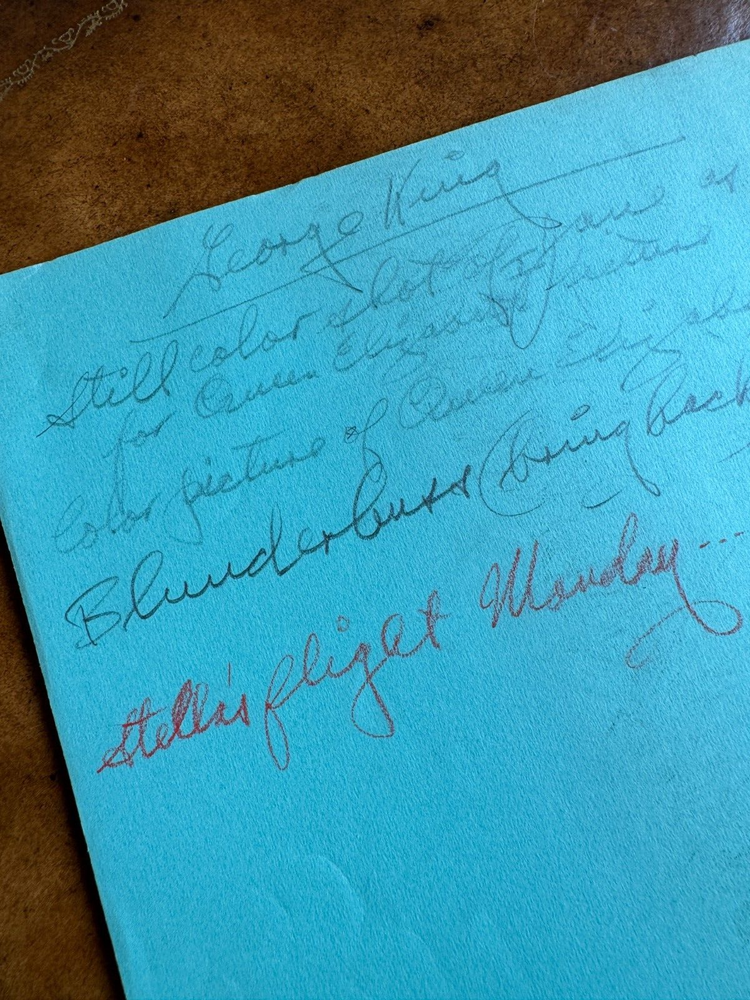 George King
Still color shot of
for Queen Elizabeth picture
Color picture of Queen Elizab
Blunderbuss (bring back
Stella's flight Monday...